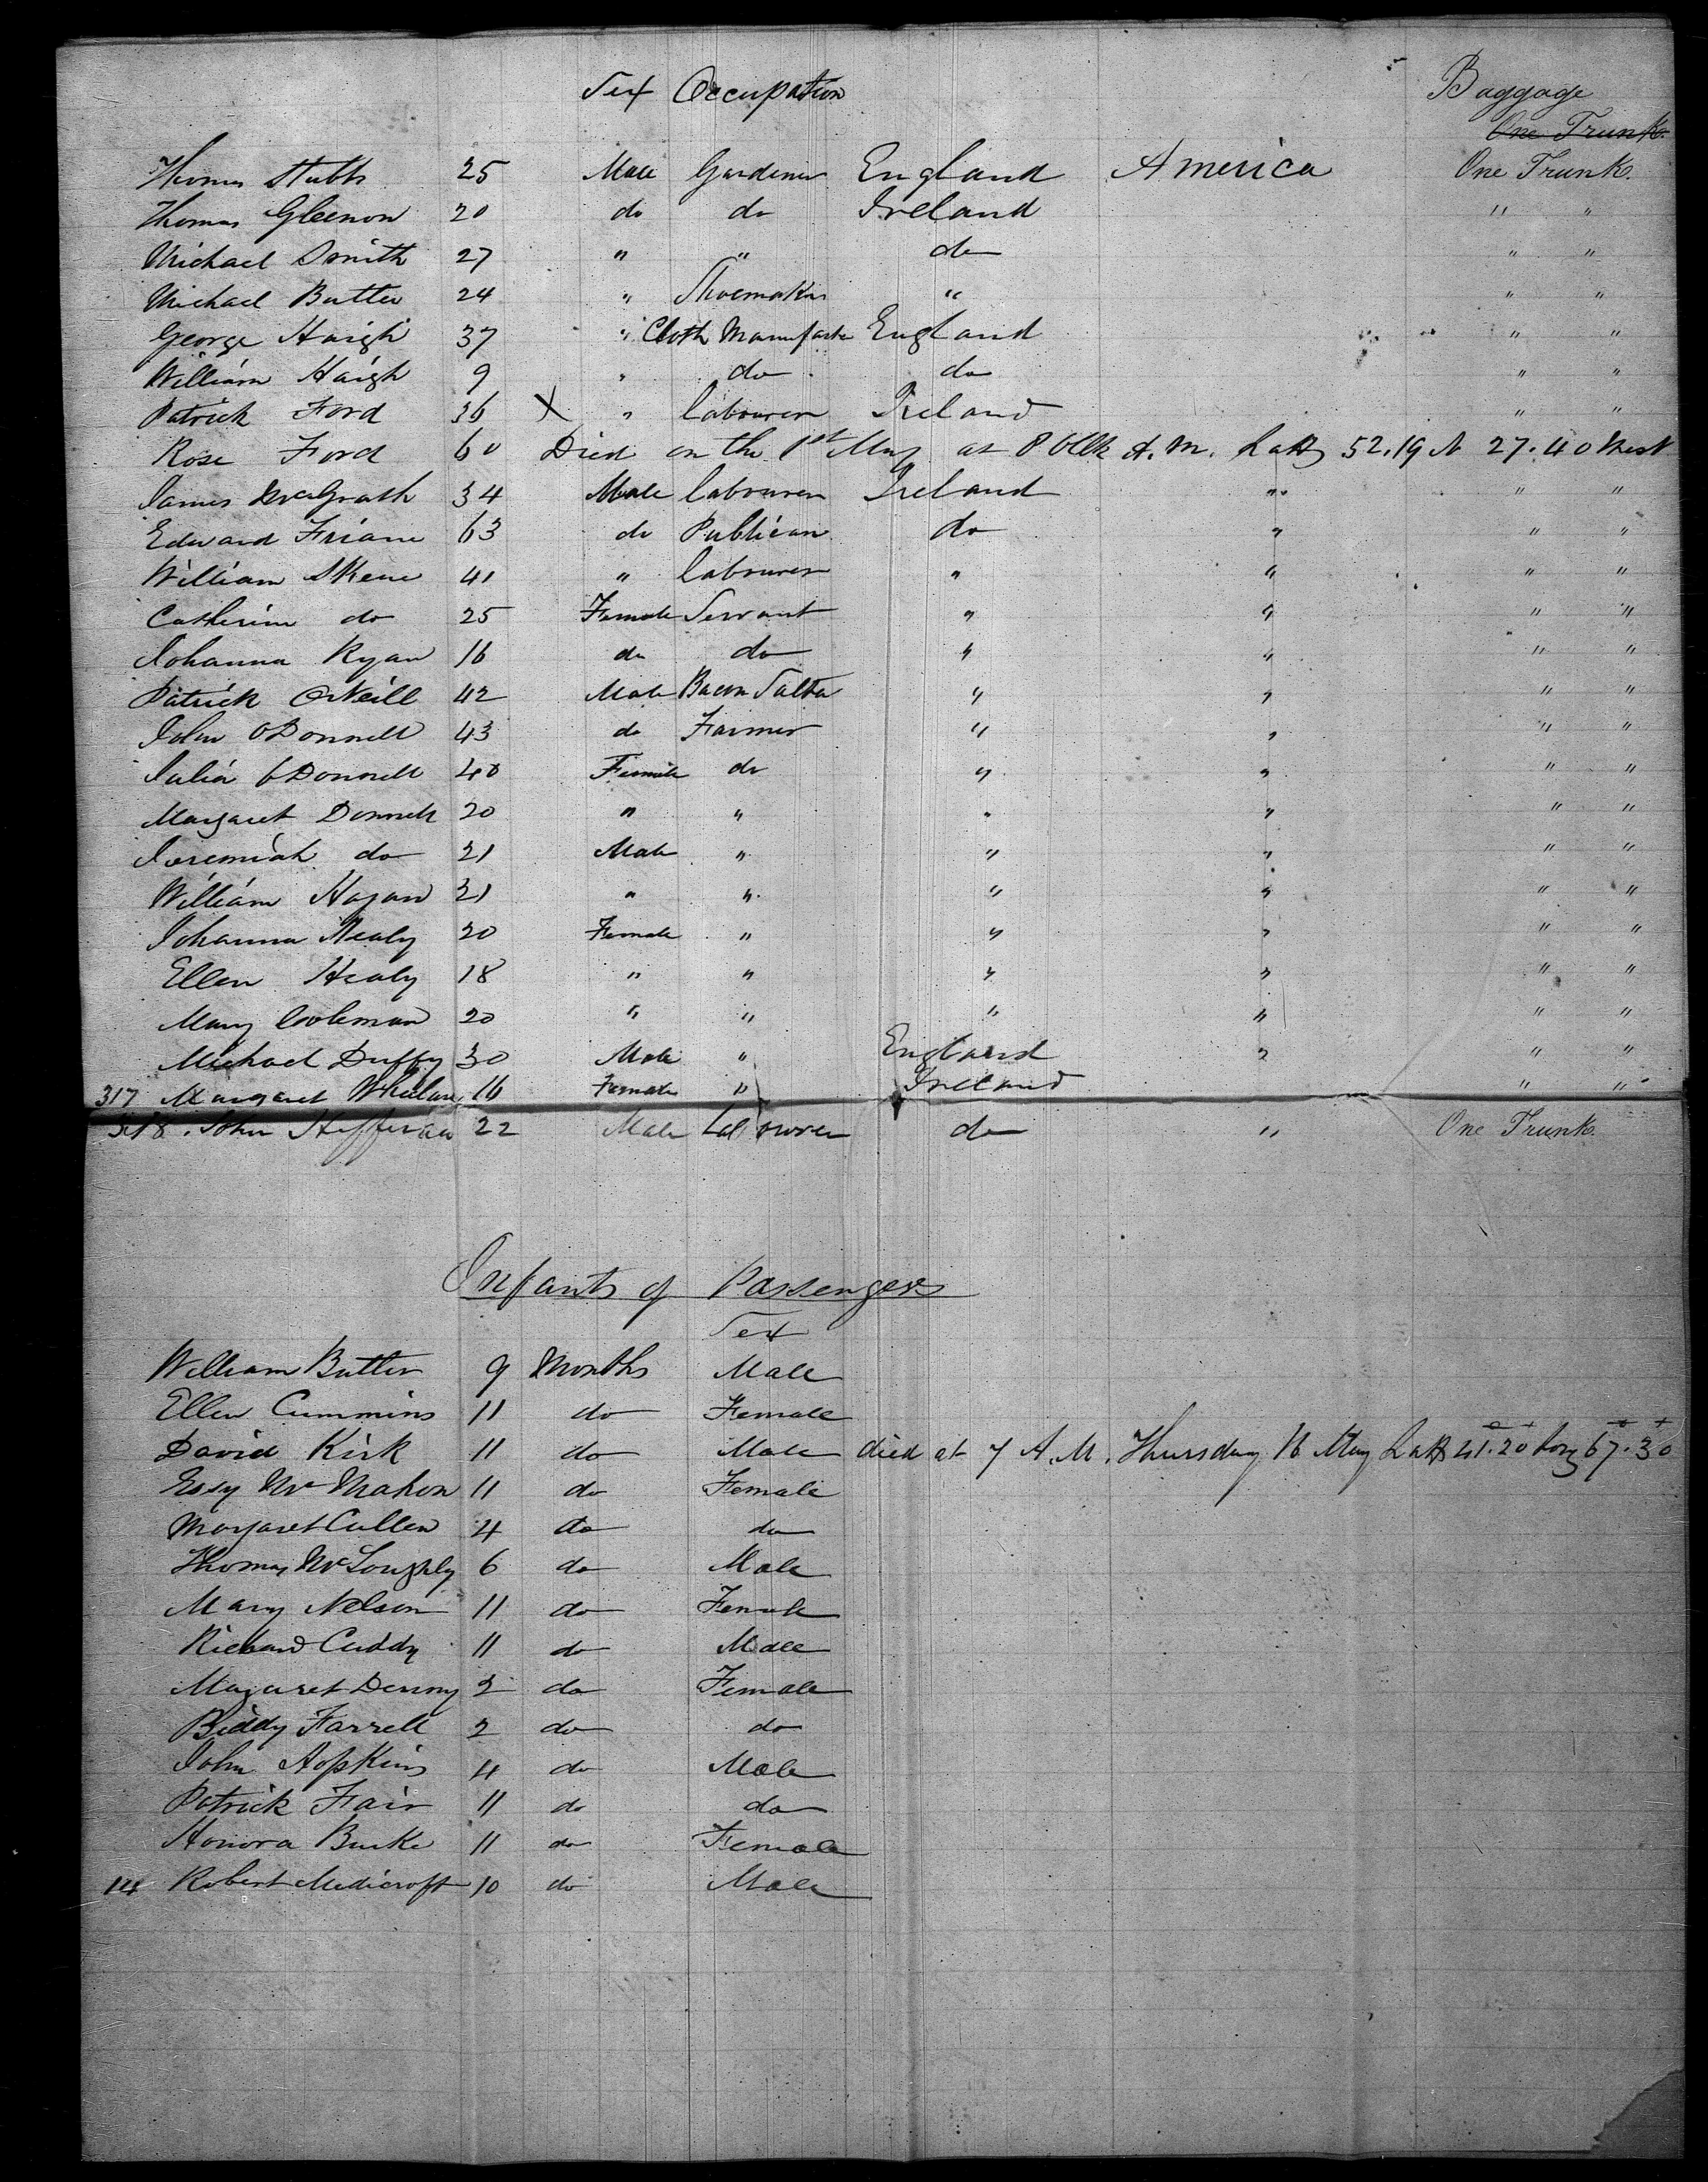 Sex Occupation Baggage
One Trunk.
Thomas Stubbs 25 Male Gardener England America One Trunk.
Thomas Gleenon 20 do do Ireland " "
Michael Smith 27 " " do " "
Michael Butler 24 " Shoemaker " " "
George Haigh 37 " Cloth Manufactr England " "
William Haigh 9 " do do " "
Patrick Ford 36 X " labourer Ireland " "
Rose Ford 60 Died on the 1st May at 8 Oclk A.M. Latt 52.19 N 27.40 West
James McGrath 34 Male labourer Ireland " " "
Edward 63 do Publican do " " "
William Skene 41 " labourer " " " "
Catherine do 25 Female Servant " " " "
Johanna Ryan 16 do do " " " "
Patrick ONeill 42 Male Bacon Salter " " " "
John ODonnell 43 do Farmer " " " "
Julia ODonnell 40 Female do " " " "
Margaret Donnell 20 " " " " " "
Jeremiah do 21 Male " " " " "
William Hagan 21 " " " " " "
Johanna Healy 20 Female " " " " "
Ellen Healy 18 " " " " " "
Mary Cooleman 20 " " " " " "
Michael Duffy 30 Male " England " " "
317 Margaret Whelan 16 Female " Ireland " "
318 John Heffernan 22 Male Labourer do " One Trunk.
Infants of Passengers
Sex
William Butler 9 Months Male
Ellen Cummins 11 do Female
David Kirk 11 do Male died at 7 A.M. Thursday 16 May Latt 41.20 Long 67.30
Essy McMahon 11 do Female
Margaret Cullen 4 do do
Thomas McLoughly 6 do Male
Mary Nelson 11 do Female
Richard Cuddy 11 do Male
Magaret Denny 2 do Female
Biddy Farrell 2 do do
John Hopkins 4 do Male
Patrick Fair 11 do do
Honora Burke 11 do Female
14 Robert Medicroft 10 do Male